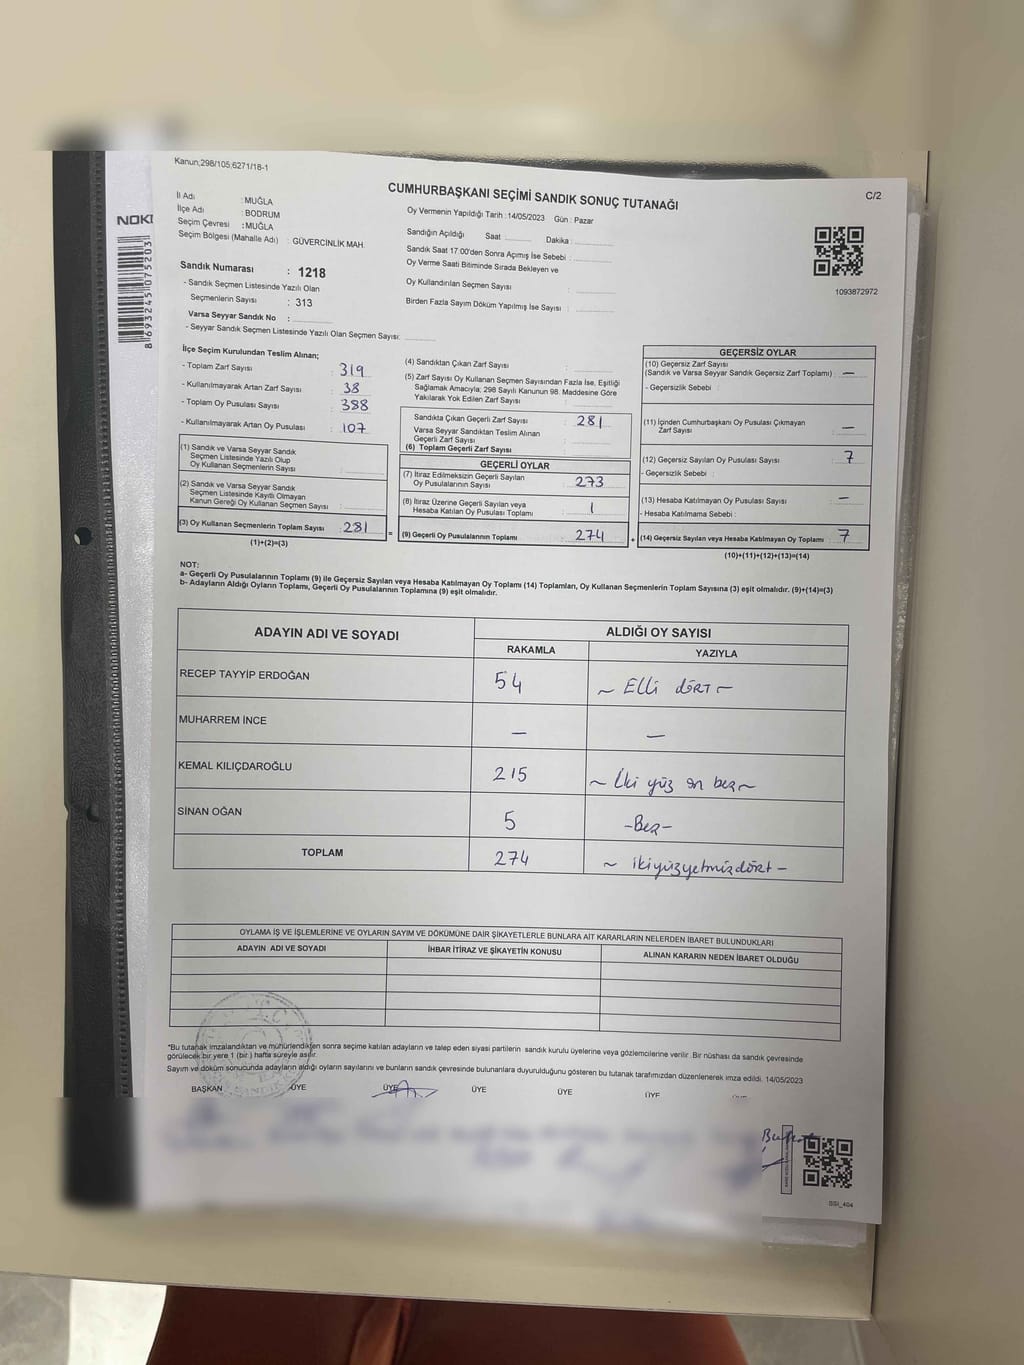 Kanun;298/105;6271/18-1
CUMHURBAŞKANI SEÇİMİ SANDIK SONUÇ TUTANAĞI
C/2
İl Adı : MUĞLA
İlçe Adı : BODRUM
Seçim Çevresi : MUĞLA
Seçim Bölgesi (Mahalle Adı) : GÜVERCİNLİK MAH.
Sandık Numarası : 1218
- Sandık Seçmen Listesinde Yazılı Olan
Seçmenlerin Sayısı : 313
Varsa Seyyar Sandık No :
- Seyyar Sandık Seçmen Listesinde Yazılı Olan Seçmen Sayısı:
Oy Vermenin Yapıldığı Tarih : 14/05/2023 Gün : Pazar
Sandığın Açıldığı Saat Dakika :
Sandık Saat 17.00'den Sonra Açımış İse Sebebi :
Oy Verme Saati Bitiminde Sırada Bekleyen ve
Oy Kullandırılan Seçmen Sayısı :
Birden Fazla Sayım Döküm Yapılmış İse Sayısı :
1093872972
NOKI
8 693245 075203
İlçe Seçim Kurulundan Teslim Alınan;
- Toplam Zarf Sayısı : 319
- Kullanılmayarak Artan Zarf Sayısı : 38
- Toplam Oy Pusulası Sayısı : 388
- Kullanılmayarak Artan Oy Pusulası : 107
(1) Sandık ve Varsa Seyyar Sandık
Seçmen Listesinde Yazılı Olup
Oy Kullanan Seçmenlerin Sayısı :
(2) Sandık ve Varsa Seyyar Sandık
Seçmen Listesinde Kayıtlı Olmayan
Kanun Gereği Oy Kullanan Seçmen Sayısı :
(3) Oy Kullanan Seçmenlerin Toplam Sayısı : 281
(1)+(2)=(3)
(4) Sandıktan Çıkan Zarf Sayısı :
(5) Zarf Sayısı Oy Kullanan Seçmen Sayısından Fazla İse, Eşitliği
Sağlamak Amacıyla; 298 Sayılı Kanunun 98. Maddesine Göre
Yakılarak Yok Edilen Zarf Sayısı :
Sandıkta Çıkan Geçerli Zarf Sayısı : 281
Varsa Seyyar Sandıktan Teslim Alınan
Geçerli Zarf Sayısı :
(6) Toplam Geçerli Zarf Sayısı :
GEÇERLİ OYLAR
(7) İtiraz Edilmeksizin Geçerli Sayılan
Oy Pusulalarının Sayısı : 273
(8) İtiraz Üzerine Geçerli Sayılan veya
Hesaba Katılan Oy Pusulası Toplamı : 1
= (9) Geçerli Oy Pusulalarının Toplamı : 274
GEÇERSİZ OYLAR
(10) Geçersiz Zarf Sayısı
(Sandık ve Varsa Seyyar Sandık Geçersiz Zarf Toplamı) : —
- Geçersizlik Sebebi :
(11) İçinden Cumhurbaşkanı Oy Pusulası Çıkmayan
Zarf Sayısı : —
(12) Geçersiz Sayılan Oy Pusulası Sayısı : 7
- Geçersizlik Sebebi :
(13) Hesaba Katılmayan Oy Pusulası Sayısı : —
- Hesaba Katılmama Sebebi :
+ (14) Geçersiz Sayılan veya Hesaba Katılmayan Oy Toplamı : 7
(10)+(11)+(12)+(13)=(14)
NOT:
a- Geçerli Oy Pusulalarının Toplamı (9) ile Geçersiz Sayılan veya Hesaba Katılmayan Oy Toplamı (14) Toplamları, Oy Kullanan Seçmenlerin Toplam Sayısına (3) eşit olmalıdır. (9)+(14)=(3)
b- Adayların Aldığı Oyların Toplamı, Geçerli Oy Pusulalarının Toplamına (9) eşit olmalıdır.
ADAYIN ADI VE SOYADI ALDIĞI OY SAYISI
RAKAMLA YAZIYLA
RECEP TAYYİP ERDOĞAN 54 ~ Elli dört ~
MUHARREM İNCE — —
KEMAL KILIÇDAROĞLU 215 ~ İki yüz on beş ~
SİNAN OĞAN 5 -Beş-
TOPLAM 274 ~ ikiyüzyetmişdört -
OYLAMA İŞ VE İŞLEMLERİNE VE OYLARIN SAYIM VE DÖKÜMÜNE DAİR ŞİKAYETLERLE BUNLARA AİT KARARLARIN NELERDEN İBARET BULUNDUKLARI
ADAYIN ADI VE SOYADI İHBAR İTİRAZ VE ŞİKAYETİN KONUSU ALINAN KARARIN NEDEN İBARET OLDUĞU
*Bu tutanak imzalandıktan ve mühürlendikten sonra seçime katılan adayların ve talep eden siyasi partilerin sandık kurulu üyelerine veya gözlemcilerine verilir. Bir nüshası da sandık çevresinde
görülecek bir yere 1 (bir) hafta süreyle asılır.
Sayım ve döküm sonucunda adayların aldığı oyların sayılarını ve bunların sandık çevresinde bulunanlara duyurulduğunu gösteren bu tutanak tarafımızdan düzenlenerek imza edildi. 14/05/2023
BAŞKAN ÜYE ÜYE ÜYE ÜYE ÜYE
SSI_404